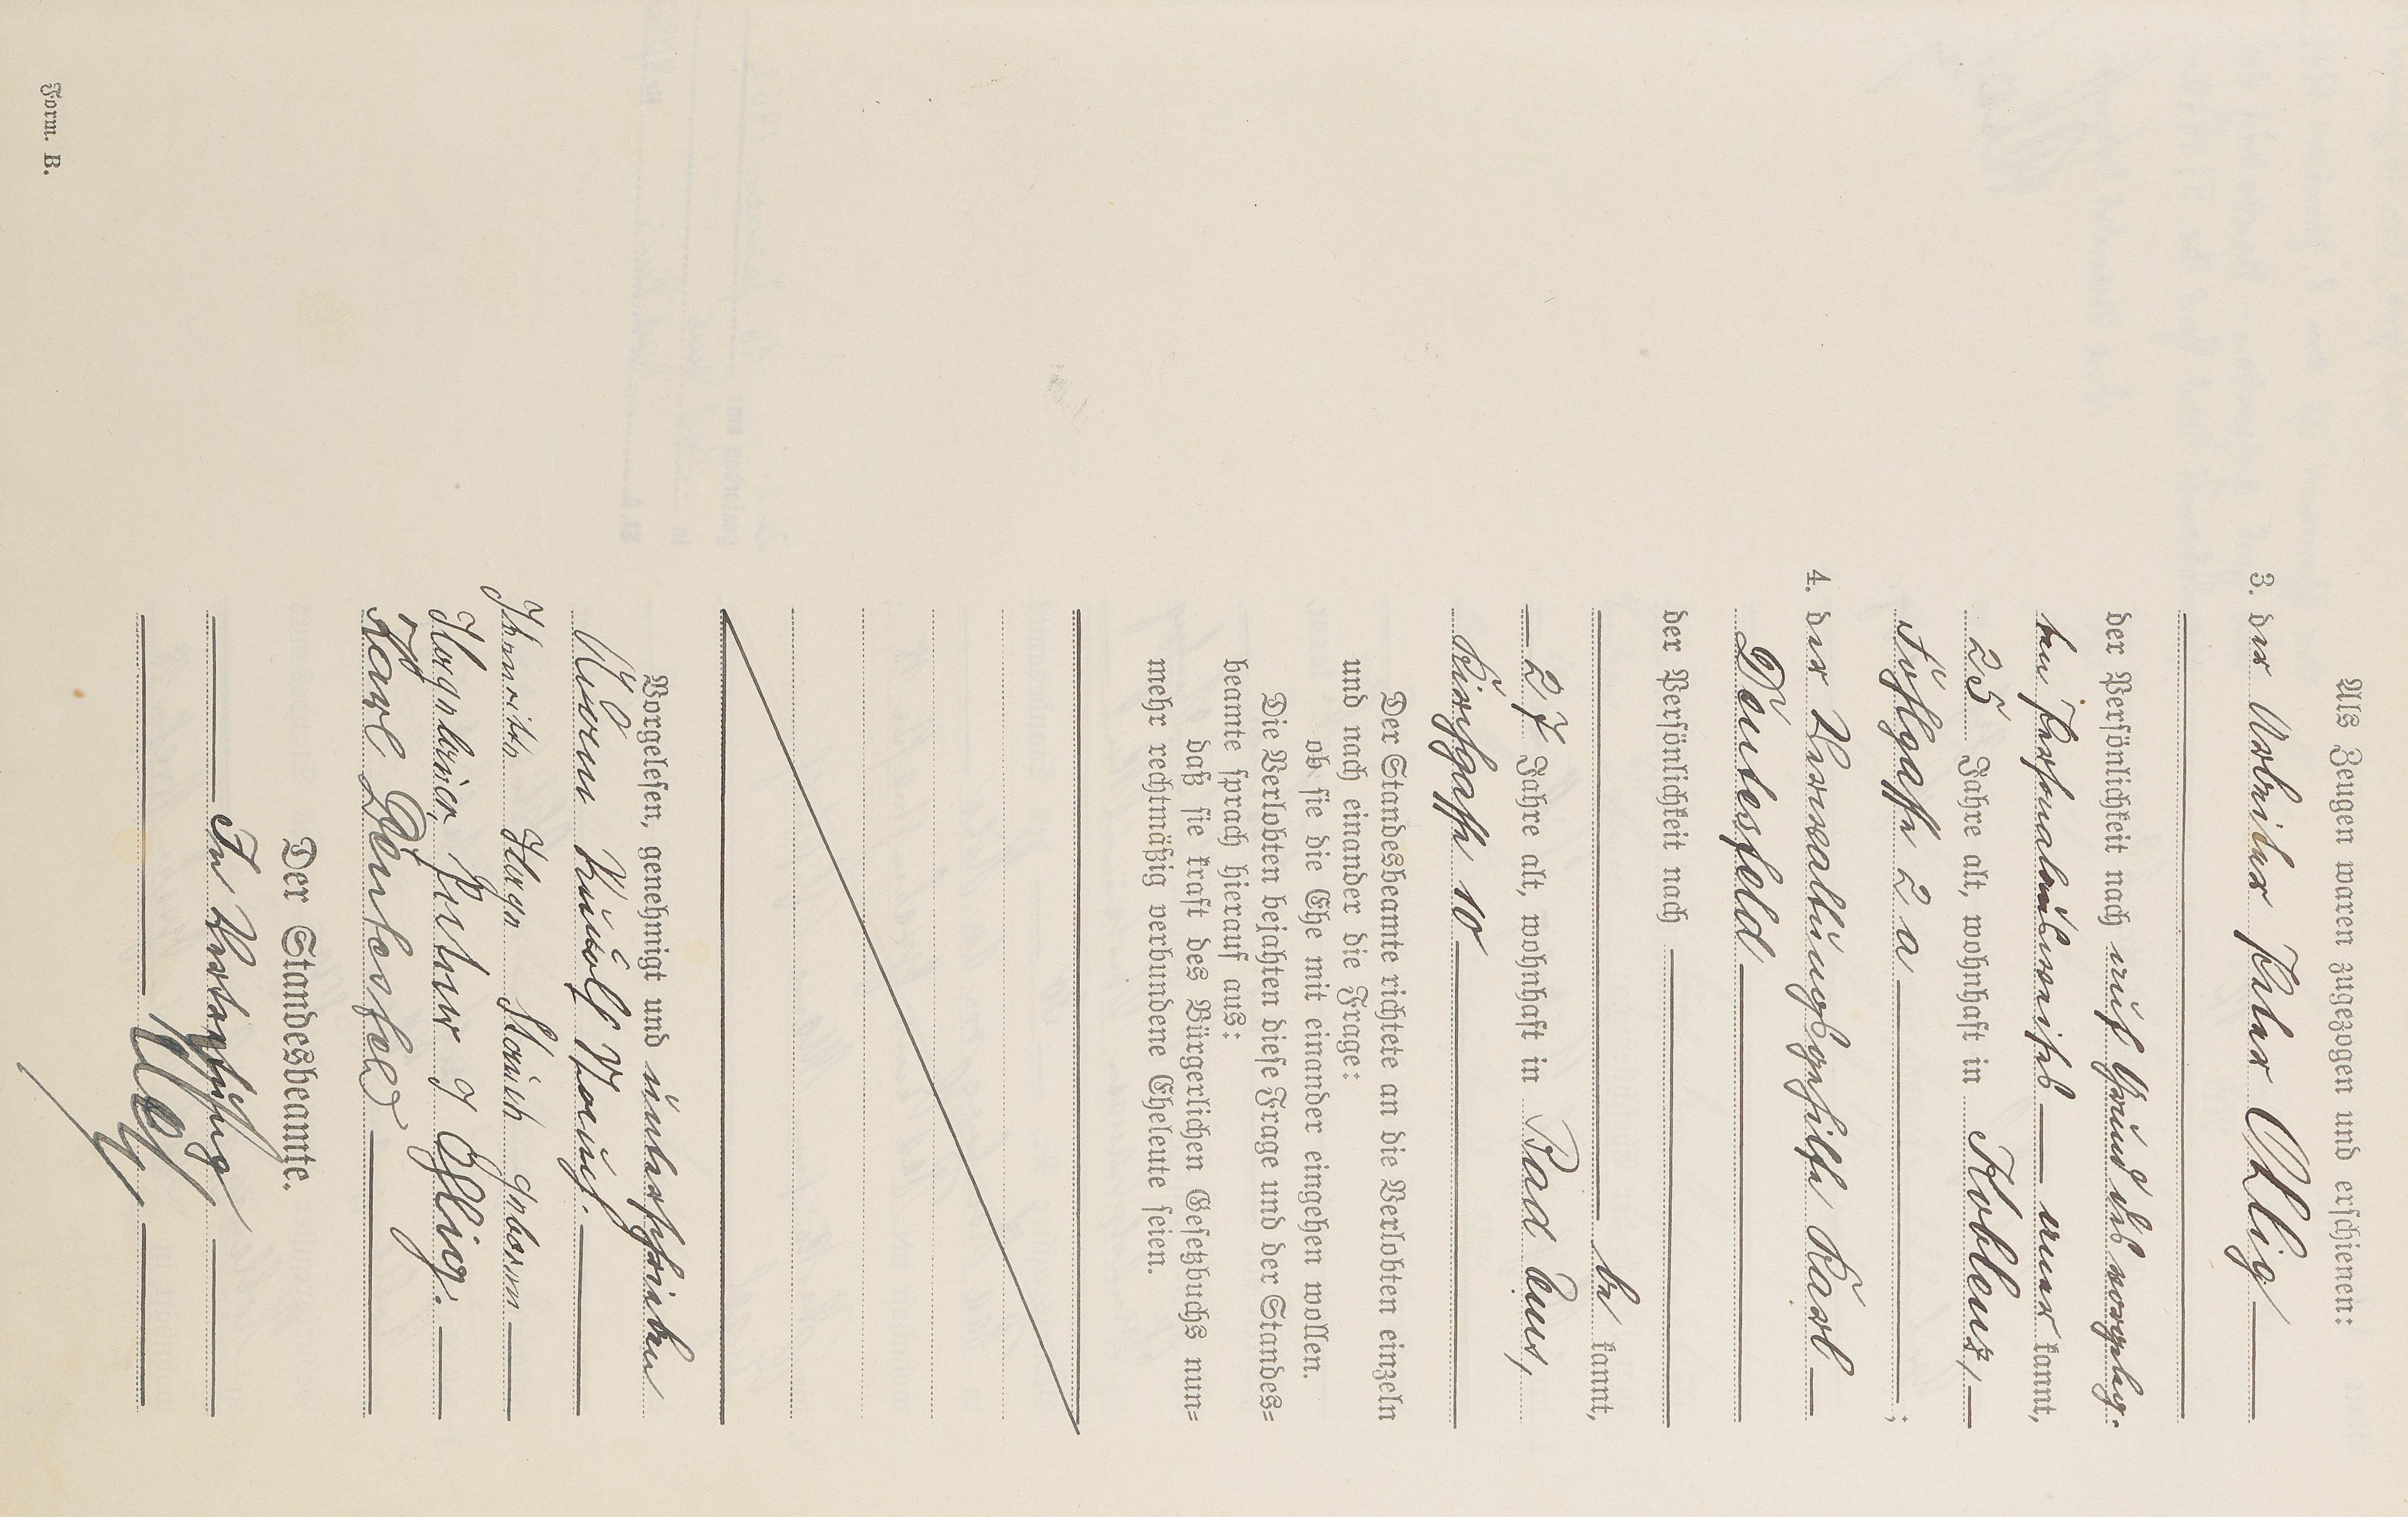 Als Zeugen waren zugezogen und erschienen:
3. der Arbeiter Peter Uhlig
der Persönlichkeit nach auf Grund des vorgeleg-
ten Personalausweises aner kannt,
25 Jahre alt, wohnhaft in Koblenz,
Fischgasse 2 a ;
4. der Verwaltungsgehilfe Karl
Dentesfeld
der Persönlichkeit nach
be kannt,
27 Jahre alt, wohnhaft in Bad Ems,
Kirchgasse 10
Der Standesbeamte richtete an die Verlobten einzeln
und nach einander die Frage:
ob sie die Ehe mit einander eingehen wollen.
Die Verlobten bejahten diese Frage und der Standes=
beamte sprach hierauf aus:
daß sie kraft des Bürgerlichen Gesetzbuchs nun=
mehr rechtmäßig verbundene Eheleute seien.
Vorgelesen, genehmigt und unterschrieben
Rudolf
geborene
Peter J Uhlig.
Karl Dentesfeld
Der Standesbeamte.
In Vertretung
Form. B.